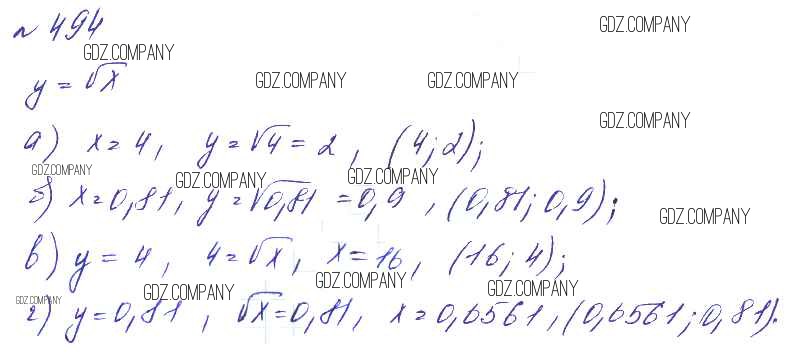 № 494
GDZ.COMPANY
GDZ.COMPANY
y = √x
GDZ.COMPANY
GDZ.COMPANY
GDZ.COMPANY
а) x = 4, y = √4 = 2, (4; 2);
GDZ.COMPANY
GDZ.COMPANY
GDZ.COMPANY
б) x = 0,81, y = √0,81 = 0,9, (0,81; 0,9);
GDZ.COMPANY
в) y = 4, 4 = √x, x = 16, (16; 4);
GDZ.COMPANY
GDZ.COMPANY
GDZ.COMPANY
GDZ.COMPANY
г) y = 0,81, √x = 0,81, x = 0,6561, (0,6561; 0,81).